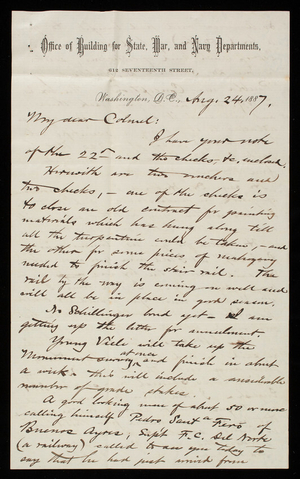 Office of Building for State, War, and Navy Departments,
612 SEVENTEENTH STREET,
Washington, D.C., Aug. 24, 1887.
My dear Colonel:
I have your note
of the 22nd and two checks, &c, enclosed.
Herewith are two vouchers and
two checks, – one of the checks is
to close an old contract for painting
materials which has hung along till
all the turpentine could be taken, – and
the other for some pieces of mahogany
needed to finish the stair-rail. The
rail by the way is coming on well and
will all be in place in good season.
No Schillinger bond yet – I am
getting up the letter for annulment.
Young Viele will take up the
Monument survey at once and finish in about
a week – this will include a considerable
number of grade stakes.
A good looking man of about 50 or more
calling himself Pedro Sant a Fero of
Buenos Ayres, Supt F.C. Del Norte
(a railway) called to see you today to
say that he had just wired from